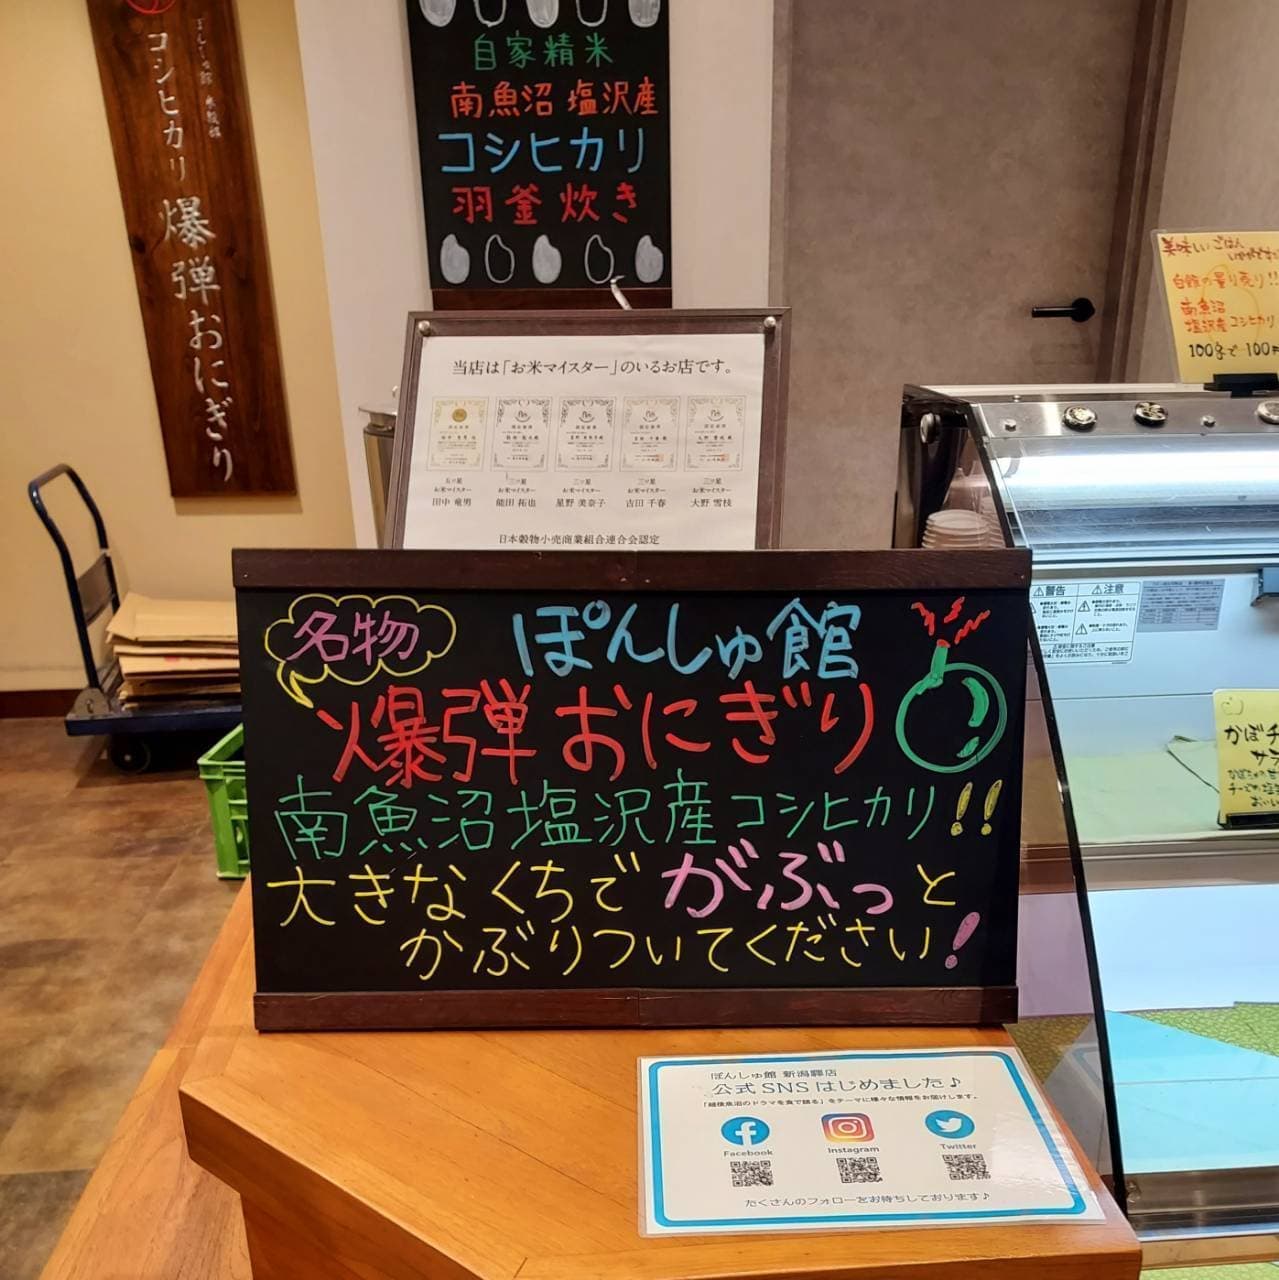 コシヒカリ 爆弾おにぎり
自家精米
南魚沼 塩沢産
コシヒカリ
羽釜炊き
当店は「お米マイスター」のいるお店です。
五ツ星 三ツ星 三ツ星 三ツ星 三ツ星
お米マイスター お米マイスター お米マイスター お米マイスター お米マイスター
田中 竜男 能田 拓也 星野 美奈子 吉田 千春 大野 雪枝
日本穀物小売商業組合連合会認定
美味しいごはん
いかがですか
白飯の量り売り!!
南魚沼
塩沢産コシヒカリ
100gで100円
名物
ぽんしゅ館
爆弾おにぎり
南魚沼塩沢産コシヒカリ!!
大きなくちでがぶっと
かぶりついてください!
警告 注意
かぼチ
サラ
ぽんしゅ館 新潟驛店
公式SNSはじめました♪
「越後魚沼のドラマを食で語る」をテーマに様々な情報をお届けします。
Facebook
Instagram
Twitter
たくさんのフォローをお待ちしております♪